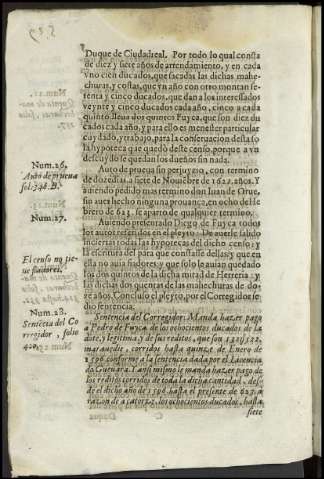 Duque de Ciudadreal. Por todo lo qual consta
de diez y siete años de arrendamiento, y en cada
vno cien ducados, que sacadas las dichas mahe-
churas, y costas, que vn año con otro montan se-
tenta y cinco ducados, que dan a los interessados
veynte y cinco ducados cada año, cinco a cada
quinto lleua dos quintos Fuyca, que son diez du
cados cada año, y para ello es menester particular
cuydado, y trabajo, para la conseruacion desta so
la hypoteca que quedò deste censo, porque a vn
descuydo se quedan los dueños sin nada.
Num. 26.
Auto de prueua
fol. 348. B.
Auto de prueua sin perjuyzio, con termino
de doze dias, a siete de Nouiẽbre de 1622. años. Y
auiendo pedido termino don Iuan de Orue,
sin auer hecho ninguna prouança, en ocho de He
brero de 623. se apartò de qualquier termino.
Num. 27.
Auiendo presentado Diego de Fuyca todos
los autos referidos en el pleyto: De auerle salido
inciertas todas las hypotecas del dicho censo: y
El censo no tie-
ne fiadores.
la escritura del para que constasse dellas: y que en
esta no auia fiadores, y que solo le auian quedado
los dos quintos de la dicha mitad de Herreria: y
las dichas quentas de las mahechuras de do-
ze años. Concluso el pleyto, por el Corregidor se
dio sentencia.
Num. 28.
Sentẽcia del Co
rregidor, folio
Sentencia del Corregidor: Manda hazer pago
a Pedro de Fuyca de los ochocientos ducados de la
dite, y legitima, y de sus reditos, que son
marauedis, corridos hasta quinze de Enero de
1596. conforme a la sentencia dada por el Licencia
do Gueuara. I ansi mismo le manda hazer pago de
los reditos corridos de toda la dicha cantidad, des-
de el dicho año de 1596 hasta el presente de 623. a
razon de a catorze, los ochocientos ducados, hasta
siete